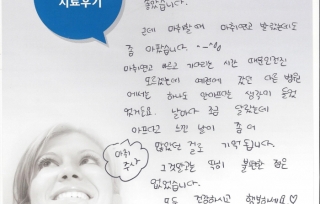 치료후기
좋았습니다.
근데 마취할 때 마취연고 발랐는데도
좀 아팠습니다 ~~
마취연고 바르고 기다리는 시간 때문인진
모르겠는데 예전에 갔던 다른 병원
에서는 하나도 안아프다는 생각이 들었
었거든요. 날마다 좀 달랐는데
아프다고 느낀 날이 좀 더
많았던 걸로 기억됩니다.
마취 주사
그것말고는 딱히 불편한 점은
없었습니다.
모두 건강하시고 행복하세요♡